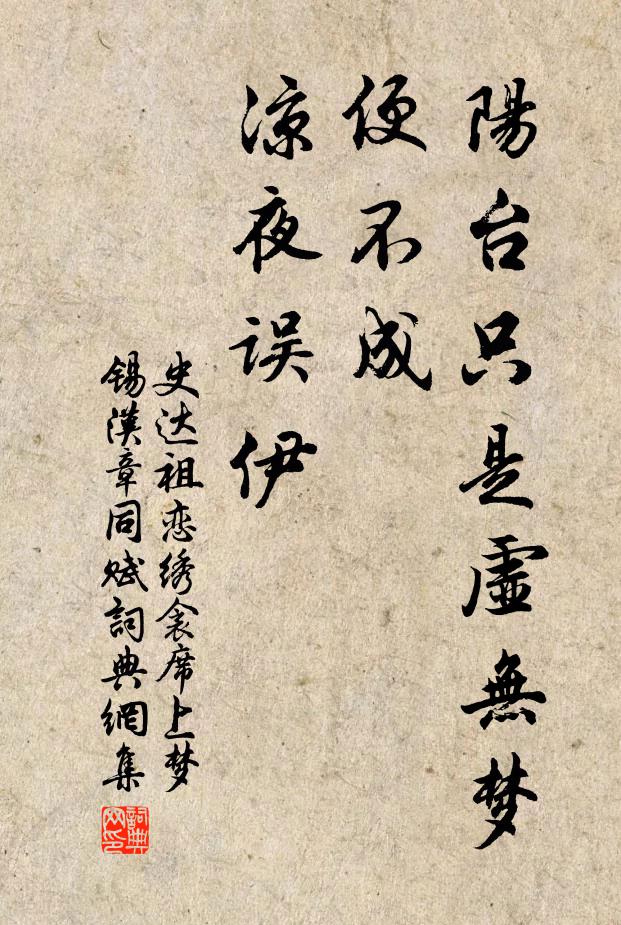 陽台只是虛無梦
便不成
凉夜误伊
史达祖恋绣衾席上梦
锡漢章同赋詞典網集
詞典网印